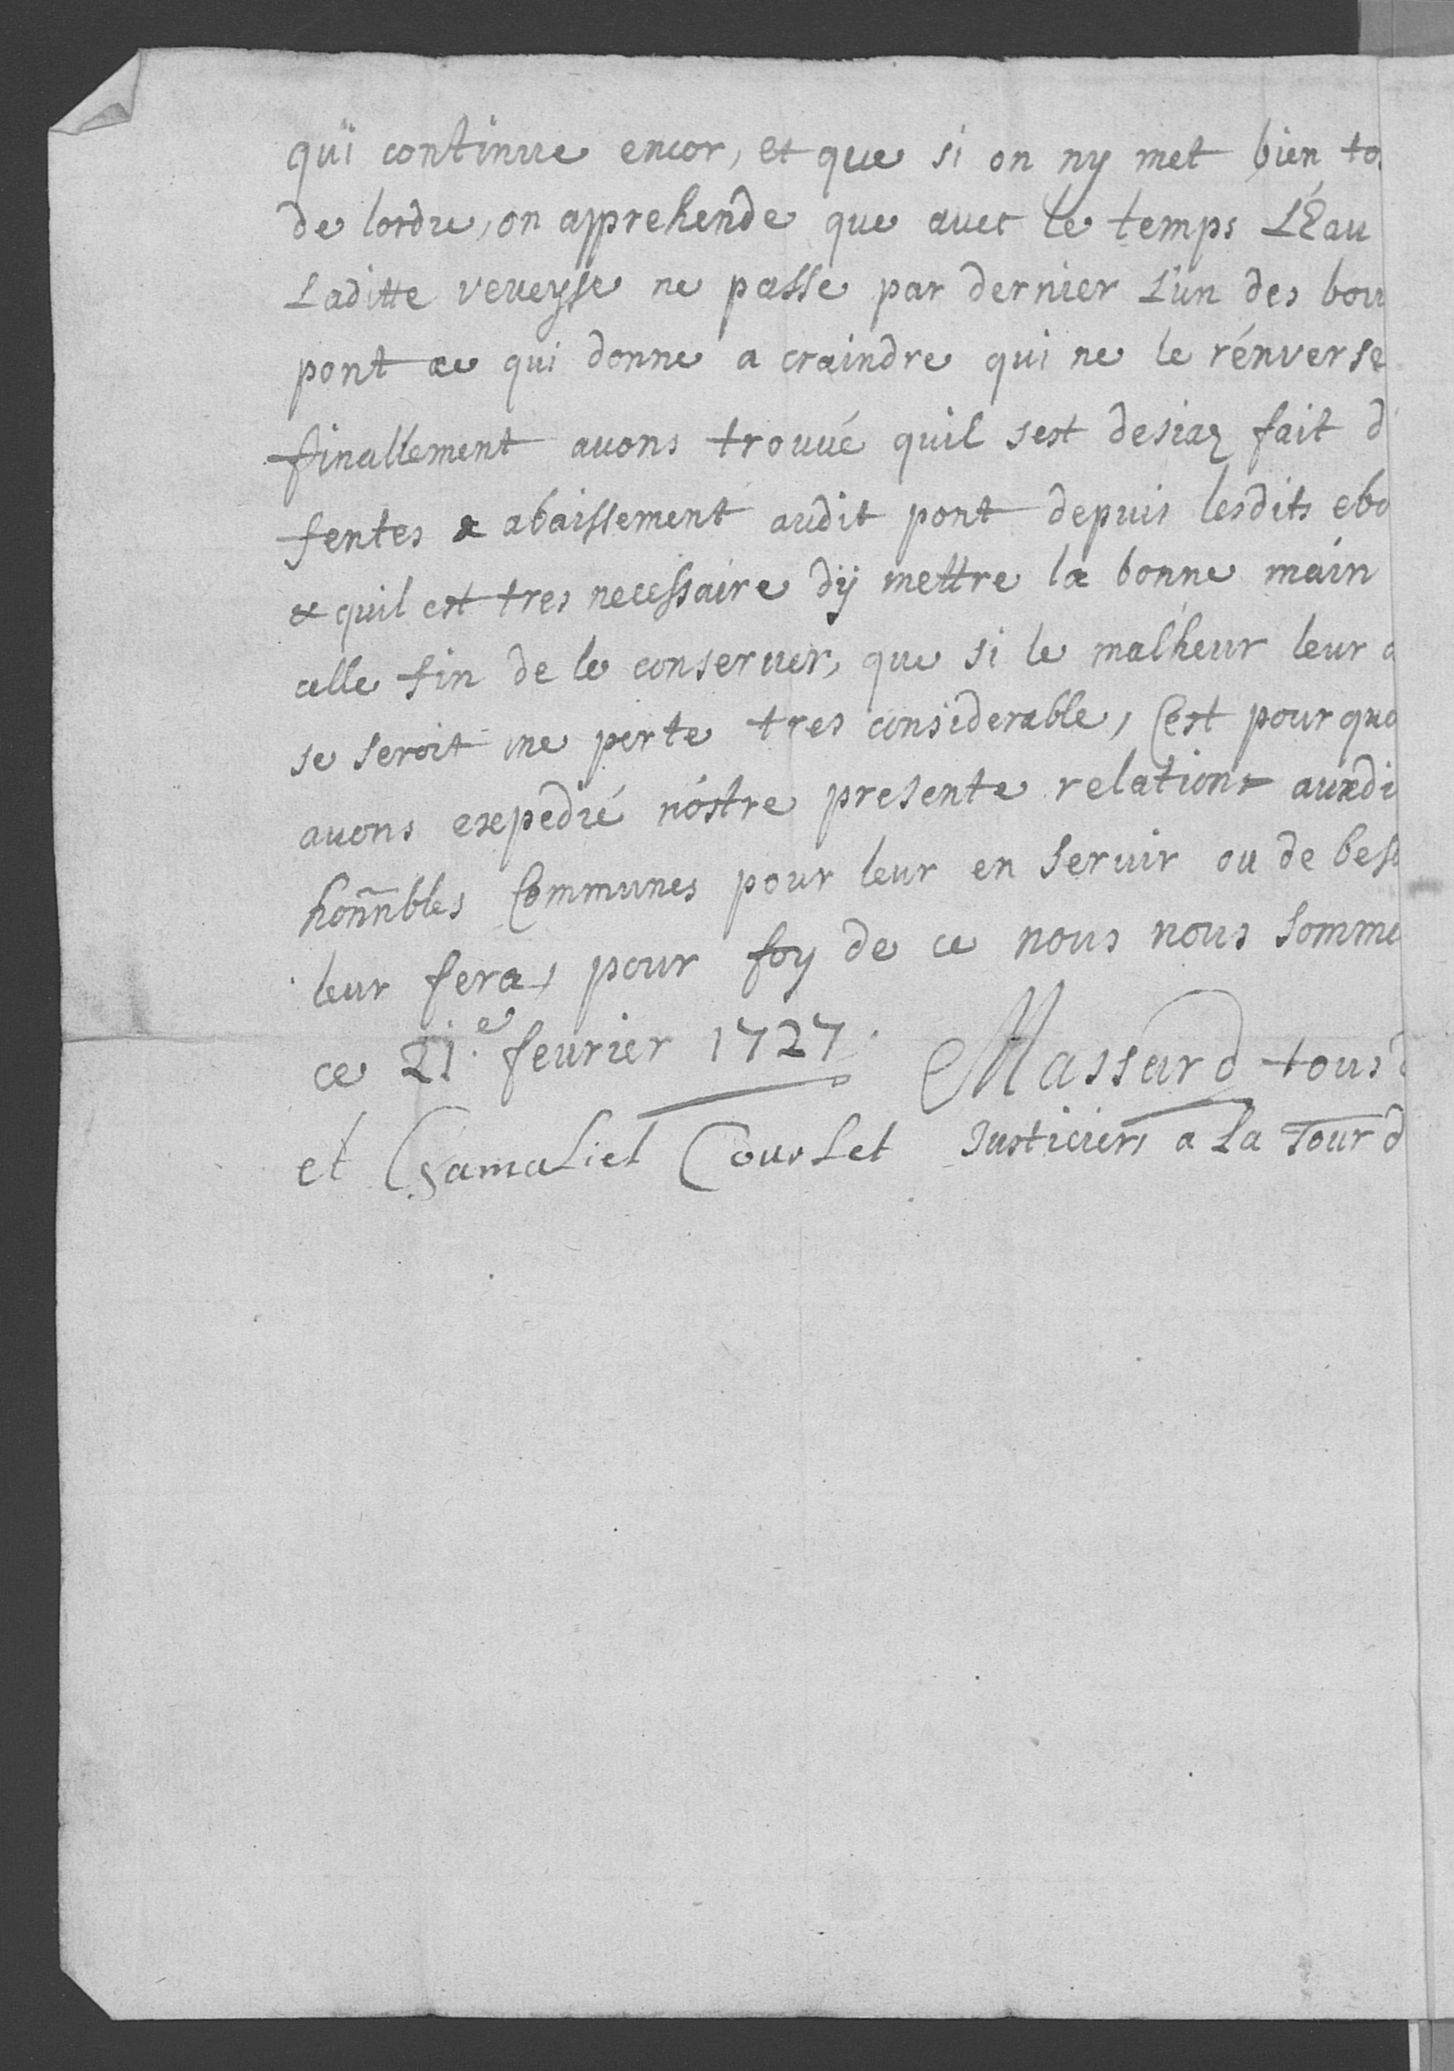 qui continue encor, et que si on ny met bien to
de lordre, on apprehende que avec le temps L'Eau
Laditte veveyse ne passe par dernier L'un des bou
pont ce qui donne a craindre qui ne le rénverse
finallement avons trouvé quil sest desiaz fait d
fentes & abaissement audit pont depuis lesdits ebo
& quil est tres necessaire dÿ mettre la bonne main
celle fin de le conseruer, que si le malheur leur a
se seroit une perte tres considerable, Cest pourquo
auons expedié nóstre presente relation auxdi
honnbles Communes pour leur en seruir ou de beso
leur fera, pour foy de ce nous nous somme
ce 21.e feurier 1727. Massard tous
et Gamaliel Couvlet Justiciers a La Tour d